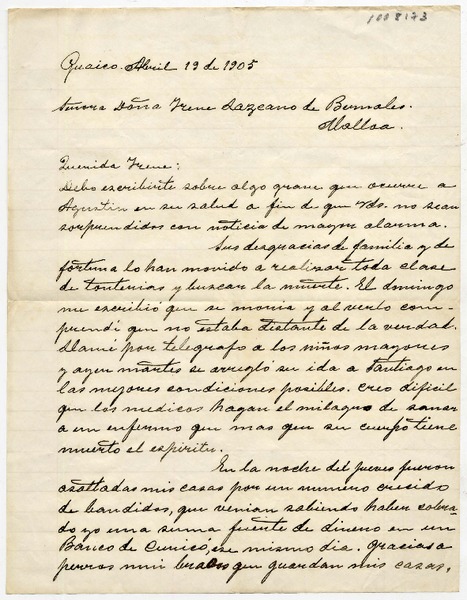 1008173
Quaico. Abril 19 de 1905
Señora Doña Irene Lazcano de Bernales.
Malloa.
Querida Irene:
Debo escribirte sobre algo grave que ocurre a
Agustin en su salud a fin de que Vds. no sean
sorprendidos con noticia de mayor alarma.
Sus desgracias de familia y de
fortuna lo han movido a realizar toda clase
de tonterias y buscar la muerte. El domingo
me escribió que se moria y al verlo com-
prendí que no estaba distante de la verdad.
Llamé por telegrafo a los niños mayores
y ayer martes se arregló su ida a Santiago en
las mejores condiciones posibles. Creo dificil
que los medicos hagan el milagro de sanar
a un enfermo que mas que su cuerpo tiene
muerto el espiritu.
En la noche del jueves fueron
asaltadas mis casas por un numero crecido
de bandidos, que venian sabiendo haber cobra-
do yo una suma fuerte de dinero en un
Banco de Curicó, ese mismo dia. Gracias a
perros mui bravos que guardan mis casas,